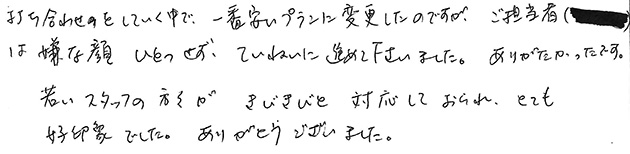 打ち合わせをしていく中で、一番安いプランに変更したのですが、ご担当者(
は嫌な顔ひとつせず、ていねいに進めて下さいました。ありがたかったです。
若いスタッフの方々がきびきびと対応しておられ、とても
好印象でした。ありがとうございました。